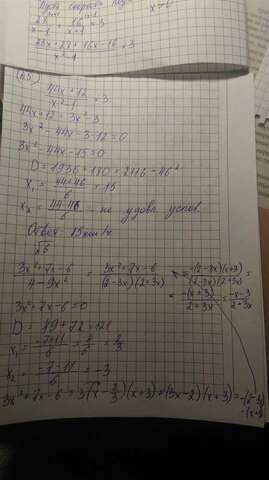 28/x-1 + 16/x+1 = 3
28x+28+16x-16/x²-1 = 3
44x+12/x²-1 = 3
44x+12=3x²-3
3x²-44x-3-12=0
3x²-44x-15=0
D=1936+180=2116=46²
x₁=44+46/6=15
x₂=44-46/6 - не удовл. услов.
Ответ 15км/ч
√6
3x²+7x-6/4-9x² = 3x²+7x-6/(2-3x)(2+3x) = -(2-3x)(x+3)/(2-3x)(2+3x) =
= -(x+3)/2+3x = -x-3/2+3x
3x²+7x-6=0
D=49+72=121
x₁=-7+11/6=4/6=2/3
x₂=-7-11/6=-3
3x²+7x-6=3(x-2/3)(x+3)=(3x-2)(x+3)=-(2-3x)